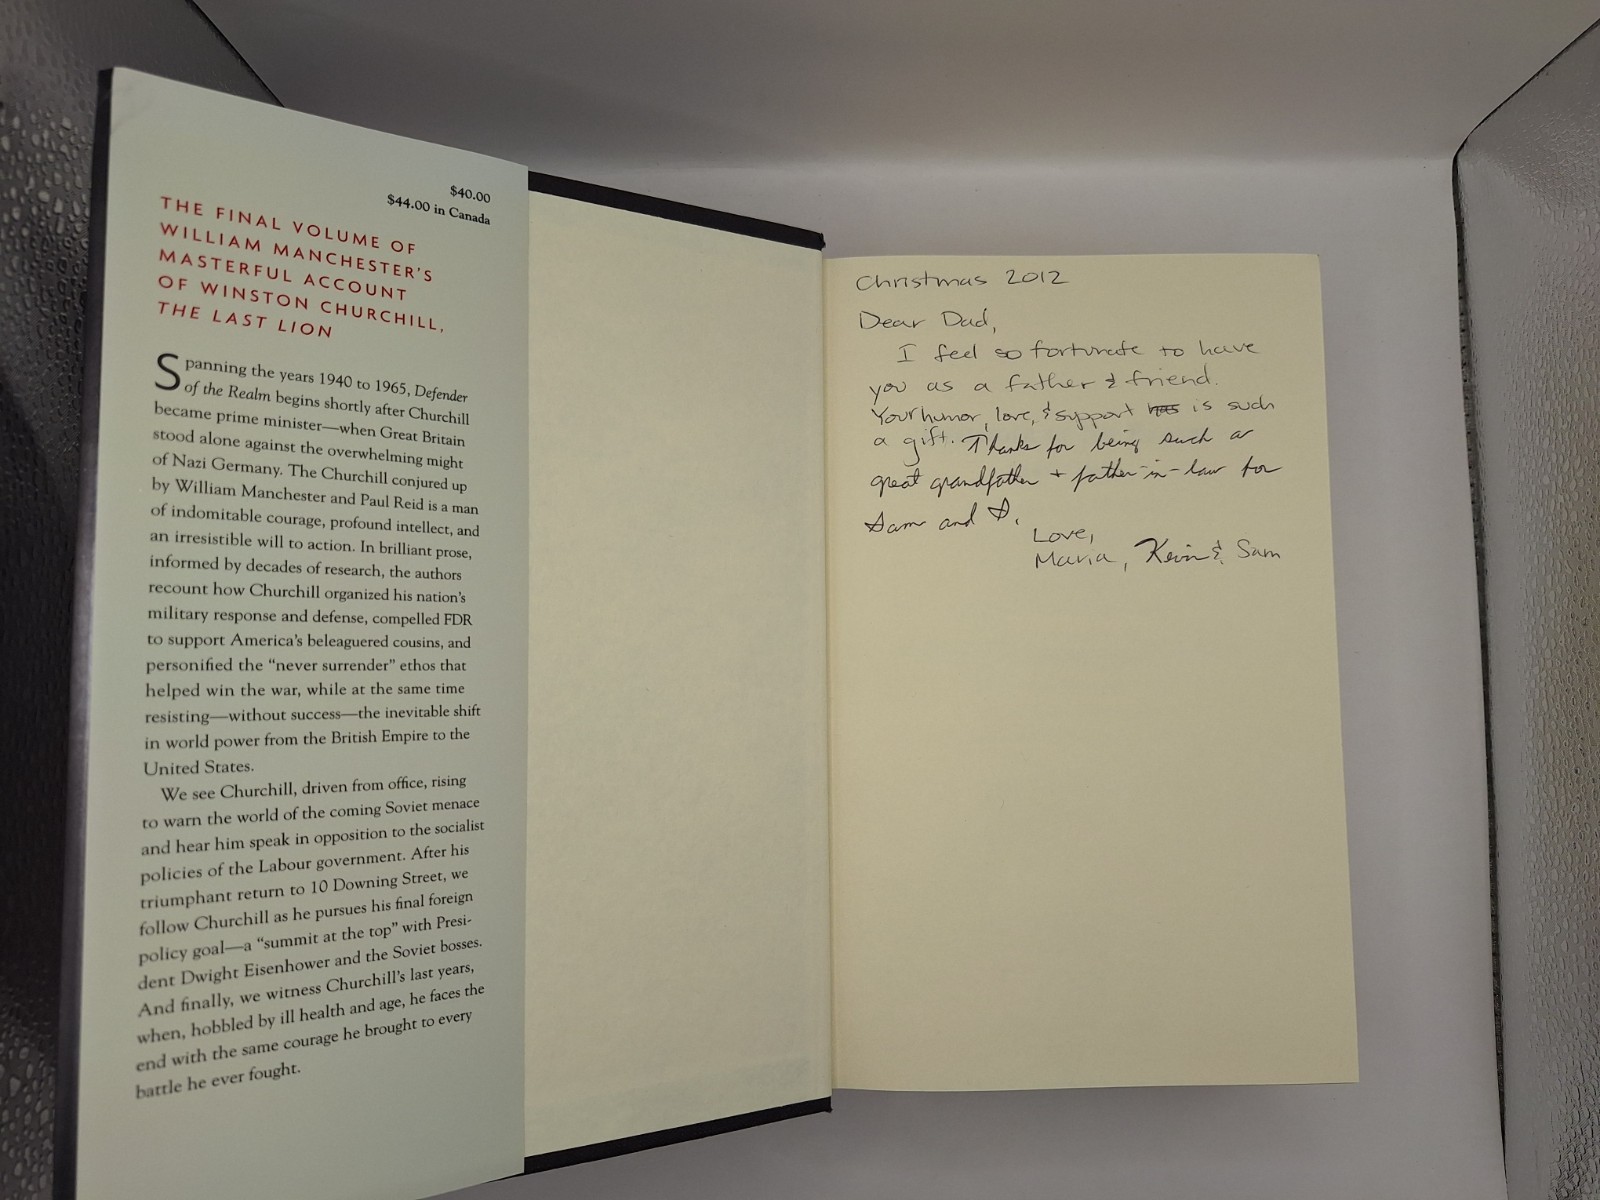 $40.00
$44.00 in Canada
THE FINAL VOLUME OF
WILLIAM MANCHESTER'S
MASTERFUL ACCOUNT
OF WINSTON CHURCHILL,
THE LAST LION
Spanning the years 1940 to 1965, Defender
of the Realm begins shortly after Churchill
became prime minister—when Great Britain
stood alone against the overwhelming might
of Nazi Germany. The Churchill conjured up
by William Manchester and Paul Reid is a man
of indomitable courage, profound intellect, and
an irresistible will to action. In brilliant prose,
informed by decades of research, the authors
recount how Churchill organized his nation's
military response and defense, compelled FDR
to support America's beleaguered cousins, and
personified the “never surrender” ethos that
helped win the war, while at the same time
resisting—without success—the inevitable shift
in world power from the British Empire to the
United States.
We see Churchill, driven from office, rising
to warn the world of the coming Soviet menace
and hear him speak in opposition to the socialist
policies of the Labour government. After his
triumphant return to 10 Downing Street, we
follow Churchill as he pursues his final foreign
policy goal—a “summit at the top” with Presi-
dent Dwight Eisenhower and the Soviet bosses.
And finally, we witness Churchill's last years,
when, hobbled by ill health and age, he faces the
end with the same courage he brought to every
battle he ever fought.
Christmas 2012
Dear Dad,
I feel so fortunate to have
you as a father & friend.
Your humor, love, & support has is such
a gift. Thanks for being such a
great grandfather + father-in-law for
Sam and I.
Love,
Maria, Kevin & Sam